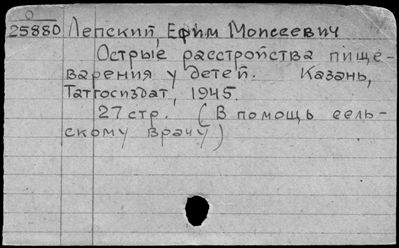 0
25880 Лепский, Ефим Моисеевич
Острые расстройства пище-
варения у детей. Казань,
Татгосиздат, 1945.
27 стр. (В помощь сель-
скому врачу)